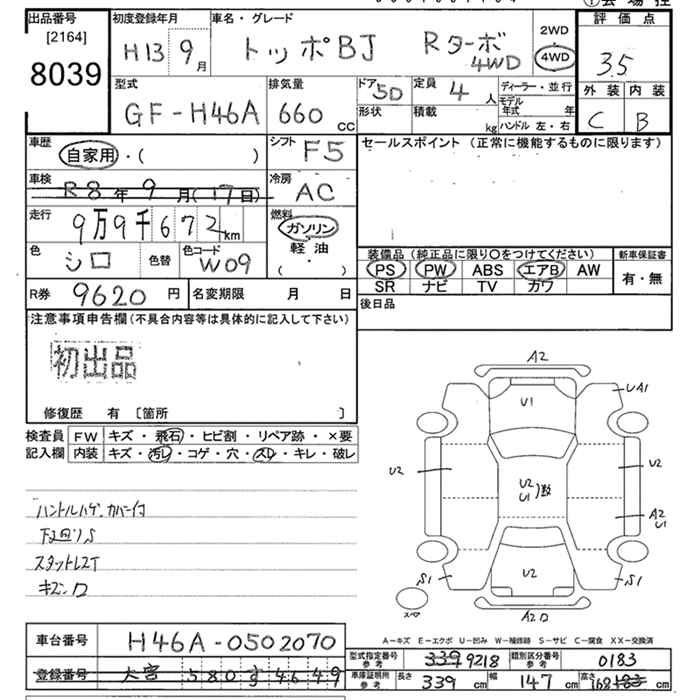 出品番号 [2164] 8039
初度登録年月 H13年 9月
車名・グレード トッポBJ Rターボ 4WD
2WD
4WD
評価点 3.5
外装 内装
C B
型式 GF-H46A
排気量 660 cc
ドア 5D
形状
定員 4人
積載 kg
ディーラー・並行
モデル年式 年
ハンドル 左・右
車歴 自家用・( )
シフト F5
セールスポイント (正常に機能するものに限ります)
車検 R8年9月(17日)
冷房 AC
走行 9万9千672km
燃料 ガソリン
軽油
・
( )
色 シロ 色替 色コード W09
装備品 (純正品に限り〇をつけてください) 新車保証書
PS PW ABS エアB AW 有・無
SR ナビ TV カワ
R券 9620円 名変期限 月 日
後日品
注意事項申告欄(不具合内容等は具体的に記入して下さい)
初出品
修復歴 有 〔箇所 〕
検査員 FW キズ・飛石・ヒビ割・リペア跡・×要
記入欄 内装 キズ・汚レ・コゲ・穴・スレ・キレ・破レ
ハンドルハゲ カバー付
下廻りS
スタットレスT
A2
U1
UA1
U2
U2
U2
U1
A2
U1
U2
S1
S1
スペア
A2
A-キズ E-エクボ U-凹み W-補修跡 S-サビ C-腐食 XX-交換済
車台番号 H46A-0502070
型式指定番号 参考 339 9218 類別区分番号 参考 0183
登録番号 大宮 580 す 4649
車庫証明所 参考 長さ 339cm 幅 147cm 高さ 168 183cm